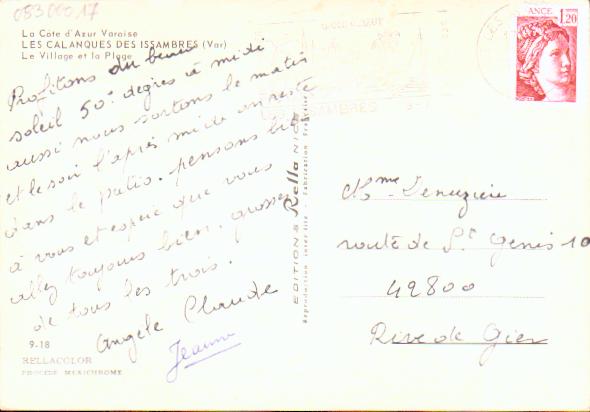 08300017
La Côte d'Azur Varoise
LES CALANQUES DES ISSAMBRES (Var)
Le Village et la Plage
Profitons du beau
soleil 50° degrès à midi
aussi nous sortons le matin
et le soir l'après midi on reste
dans le patio. pensons bien
à vous et espère que vous
allez toujours bien. grosses
de tous les trois.
Angèle Claude
Jeanne
9-18
RELLACOLOR
PROCÉDÉ MEXICHROME
EDITIONS Rella NICE
Reproduction interdite Fabrication Française
ISSAMBRES
FRANCE
1,20
route de St Genis 10
42800
Rive de Gier